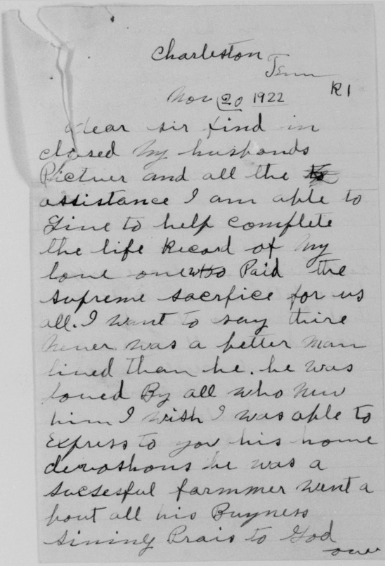 Charleston
Tenn
R1
Nov 20 1922
Dear sir find in
closed My husbonds
Pictuer and all the
assistance I am able to
Give to help complete
the life Record of My
love one who Paid the
supreme sacrfice for us
all. I want to say thire
Never was a better man
lived than he. he was
loved By all who New
him I wish I was able to
Express to you his home
devoshons he was a
sucsesful farmmer went a
bout all his Buyness
sining Prais to God
over